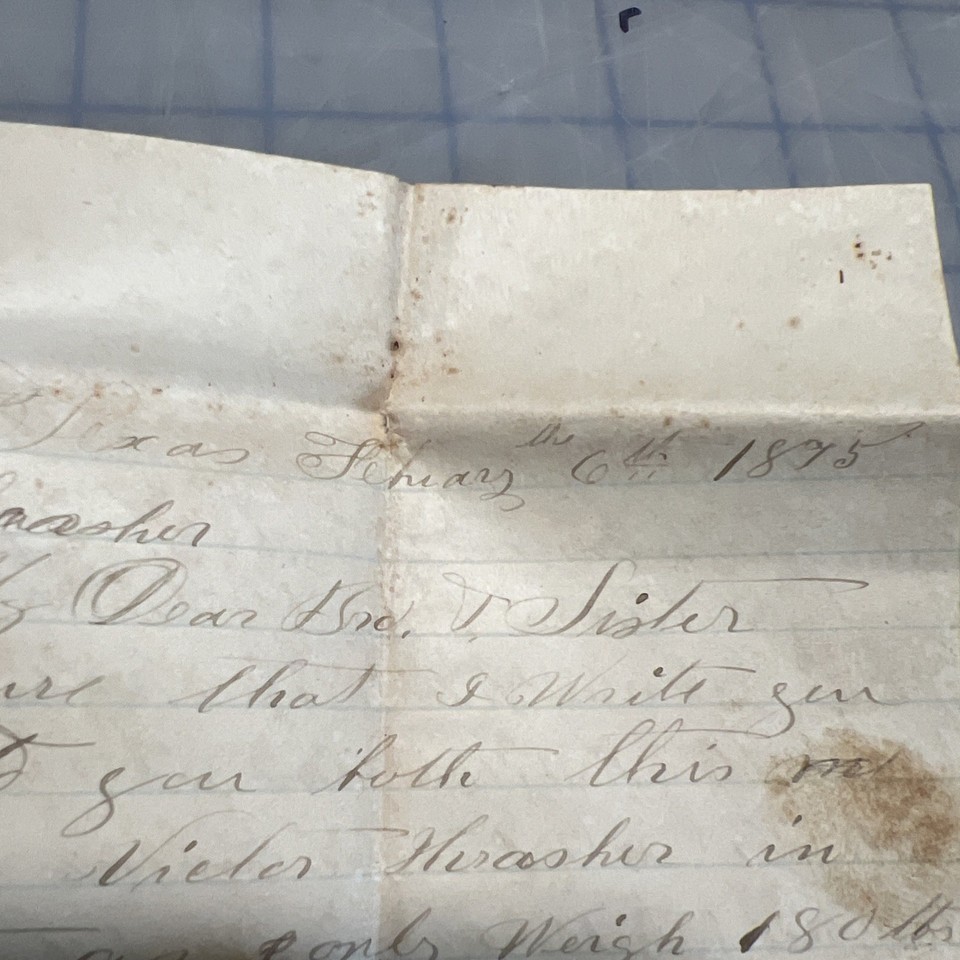 Texas Febuary the 6th 1875
Thrasher
My Dear Bro. & Sister
that I Write you
you both this
Victor Thrasher in
only Weigh 180 lbs